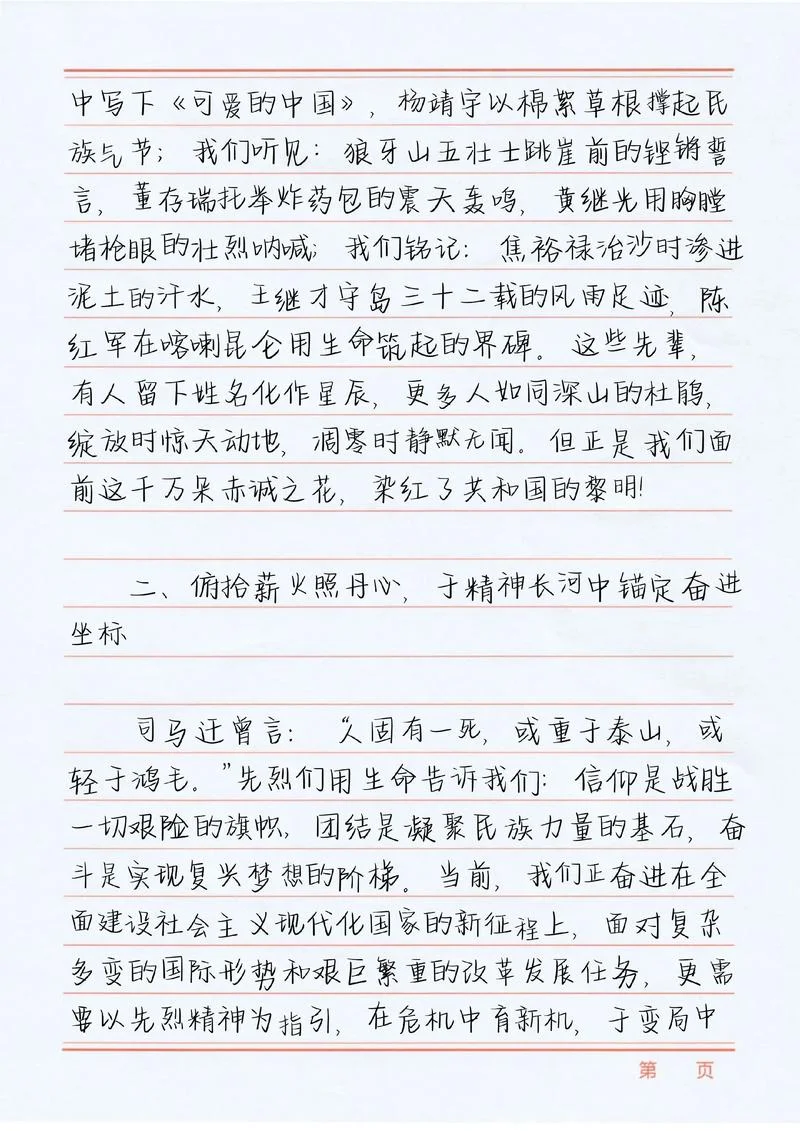 中写下《可爱的中国》，杨靖宇以棉絮草根撑起民
族气节；我们听见：狼牙山五壮士跳崖前的铿锵誓
言，董存瑞托举炸药包的震天轰鸣，黄继光用胸膛
堵枪眼的壮烈呐喊；我们铭记：焦裕禄治沙时渗进
泥土的汗水，王继才守岛三十二载的风雨足迹，陈
红军在喀喇昆仑用生命筑起的界碑。这些先辈，
有人留下姓名化作星辰，更多人如同深山的杜鹃，
绽放时惊天动地，凋零时静默无闻。但正是我们面
前这千万朵赤诚之花，染红了共和国的黎明！
二、俯拾薪火照丹心，于精神长河中锚定奋进
坐标
司马迁曾言：“人固有一死，或重于泰山，或
轻于鸿毛。”先烈们用生命告诉我们：信仰是战胜
一切艰险的旗帜，团结是凝聚民族力量的基石，奋
斗是实现复兴梦想的阶梯。当前，我们正奋进在全
面建设社会主义现代化国家的新征程上，面对复杂
多变的国际形势和艰巨繁重的改革发展任务，更需
要以先烈精神为指引，在危机中育新机，于变局中
第 页